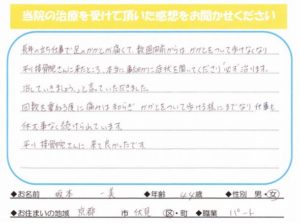 当院の治療を受けて頂いた感想をお聞かせください
長年の立ち仕事で足のかかとが痛くて、数週間前からは かかとをついて歩けなくなり
平川接骨院さんに来たところ、本当に事こまかに症状を聞いてくださり「必ず治ります。
治していきましょう。」と言っていただきました。
回数を重ねる度に痛みは和らぎ かかとをついて歩ける様にまでなり 仕事も
休む事なく続けられています。
平川接骨院さんに来て良かったです。
◆お名前 坂本 一美 ◆年齢 44歳 ◆性別 男・女
◆お住まいの地域 京都 市 伏見 区・町 ◆職業 パート